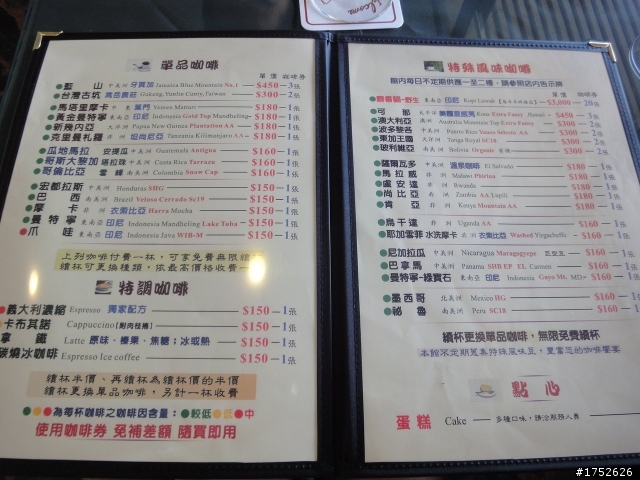 Welcome
單品咖啡
單價 咖啡券
藍山 中美洲 牙買加 Jamaica Blue Mountain No.1 $450—3張
台灣古坑 Gukeng, Yunlin Cunty, Taiwan $300—2張
馬塔里摩卡 葉門 Yemen Matari $180—1張
黃金曼特寧 東南亞 印尼 Indonesia Gold Top Mandheling $180—1張
新幾內亞 大洋洲 Papua New Gunea Plantation AA $180—1張
克里曼札羅 非洲 坦尚尼亞 Tanzania Kilimanjaro AA $180—1張
瓜地馬拉 安提瓜 中美洲 Guatemala Antigua $160—1張
哥斯大黎加 塔拉珠 中美洲 Costa Rica Tarrazu $160—1張
哥倫比亞 雪峰 南美洲 Colombia Snow Cap $160—1張
宏都拉斯 中美洲 Honduras SHG $150—1張
巴西 南美洲 Brazil Veloso Cerrado Sc19 $150—1張
摩卡 非洲 衣索比亞 Harra Mocha $150—1張
曼特寧 東南亞 印尼 Indonesia Mandheling Lake Toba $150—1張
爪哇 東南亞 印尼 Indonesia Java WIB-M $150—1張
上列咖啡付費一杯，可享免費無限續杯
續杯可更換種類，依最高價格收費一
特調咖啡
義大利濃縮 Espresso 獨家配方 $150—1張
卡布其諾 Cappuccino(附肉桂捲) $150—1張
拿鐵 Latte 原味、榛果、焦糖；冰或熱 $150—1張
碳燒冰咖啡 Espresso Ice coffee $150—1張
續杯半價、再續杯為續杯價的半價
續杯更換單品咖啡，另計一杯收費
為每杯咖啡之咖啡因含量：較低 低 中
使用咖啡券 免補差額 隨買即用
特殊風味咖啡
館內每日不定期供應一至二種，請參照店內告示牌
單價 咖啡券
麝香貓-野生 東南亞 印尼 Kopi Luwak $3,000—20張
可那 美國夏威夷 Kona Extra Fancy Hawaii $450—3張
澳大利亞 澳洲 Austrilia Mountain Top Extra Fancy $300—2張
波多黎各 中美洲 Puerto Rico Yauco Selecto AA $300—2張
東加王國 大洋洲 Tonga Royal SC18 $300—2張
玻利維亞 南美洲 Bolivia Organic $300—2張
薩爾瓦多 中美洲 溫泉咖啡 El Salvado $180—1張
馬拉威 非洲 Malawi Phirina $180—1張
盧安達 非洲 Rwanda $180—1張
尚比亞 非洲 Zambia AA Lupili $180—1張
肯亞 非洲 Kenya Mountain AA $180—1張
烏干達 非洲 Uganda AA $160—1張
耶加雪菲 水洗摩卡 非洲 衣索比亞 Washed Yirgacheffe $160—1張
尼加拉瓜 中美洲 Nicaragua Maragogype $160—1張
巴拿馬 中美洲 Panama SHB EP EL Carmen $160—1張
曼特寧-綠寶石 東南亞 印尼 Indonesia Gayo Mt. MD $160—1張
墨西哥 北美洲 Mexico HG $160—1張
祕魯 南美洲 Peru SC18 $160—1張
續杯更換單品咖啡，無限免費續杯
本館不定期蒐集特殊風味豆，豐富您的咖啡饗宴
點心
蛋糕 Cake — 多種口味，請洽服務人員
#1752626